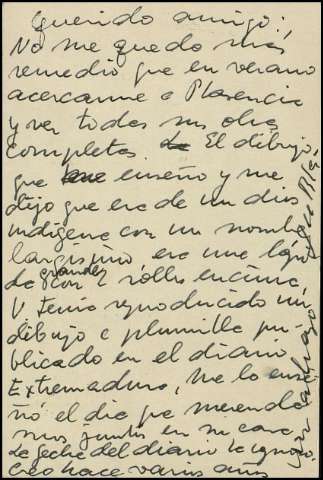 Querido amigo:
No me quedo más
remedio que en verano
acercarme a Plasencia
y ver todas sus obras
completas. El dibujo,
que enseño y me
dijo que era de un dios
indígena con un nombre
larguísimo, era una
de grandes con 2 rollos encima,
V. tenía reproducido un
dibujo a plumilla pu-
blicado en el diario
Extremadura, me lo ense-
ñó el día que merenda-
mos juntos en su casa.
La fecha del diario la ignoro.
Creo hace varios años